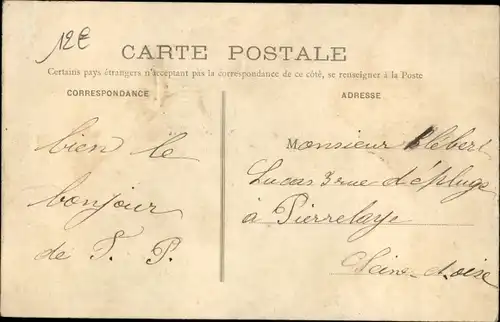 12€
CARTE POSTALE
Certains pays étrangers n'acceptant pas la correspondance de ce côté, se renseigner à la Poste
CORRESPONDANCE
ADRESSE
bien le
bonjour
de T. P.
Monsieur Klébert
Lucas 3 rue d'épluge
à Pierrelaye
Seine-et-oise